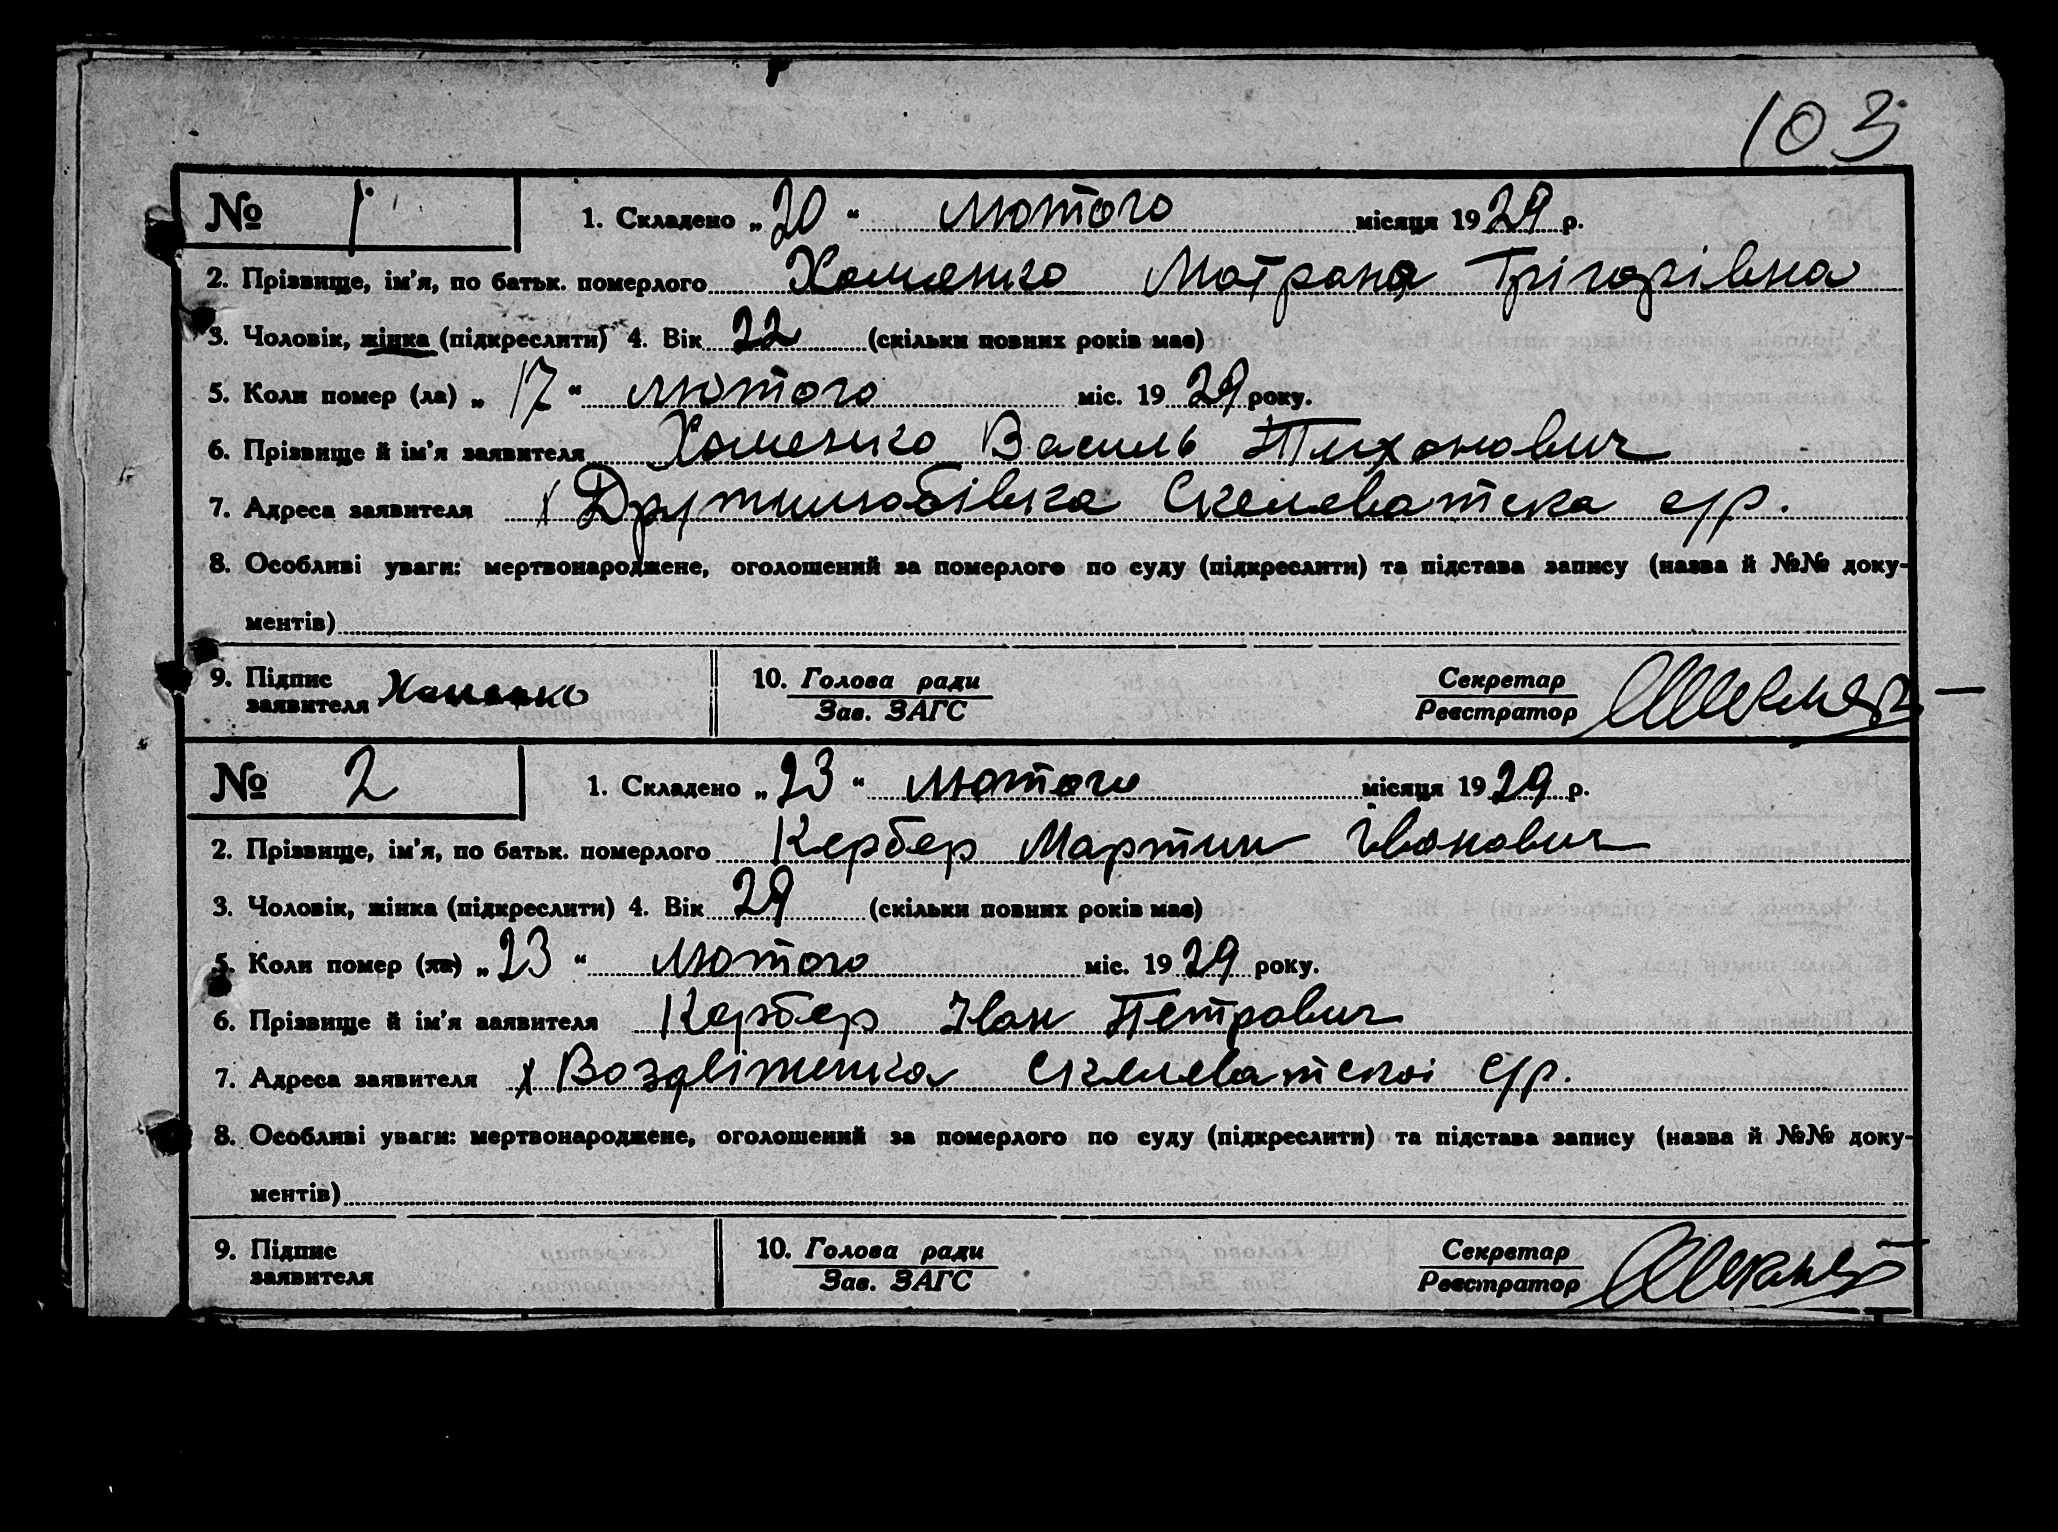 103
№ 1 1. Складено „20“ лютого місяця 1929 р.
2. Прізвище, ім'я, по батьк. померлого Хоменко Мотрона Грігорівна
3. Чоловік, жінка (підкреслити) 4. Вік 22 (скільки повних років має)
5. Коли помер (ла) „17“ лютого міс. 1929 року.
6. Прізвище й ім'я заявителя Хоменко Василь Тихонович
7. Адреса заявителя х Дружилюбівка Скелеватска с/р.
8. Особливі уваги: мертвонароджене, оголошений за померлого по суду (підкреслити) та підстава запису (назва й №№ доку-
ментів)
9. Підпис заявителя Хоменко 10. Голова ради Зав. ЗАГС Секретар Реєстратор
№ 2 1. Складено „23“ лютого місяця 1929 р.
2. Прізвище, ім'я, по батьк. померлого Кербер Мартин Іванович
3. Чоловік, жінка (підкреслити) 4. Вік 29 (скільки повних років має)
5. Коли помер (ла) „23“ лютого міс. 1929 року.
6. Прізвище й ім'я заявителя Кербер Іван Петрович
7. Адреса заявителя х Воздвіженка Скелеватскоі с/р.
8. Особливі уваги: мертвонароджене, оголошений за померлого по суду (підкреслити) та підстава запису (назва й №№ доку-
ментів)
9. Підпис заявителя 10. Голова ради Зав. ЗАГС Секретар Реєстратор